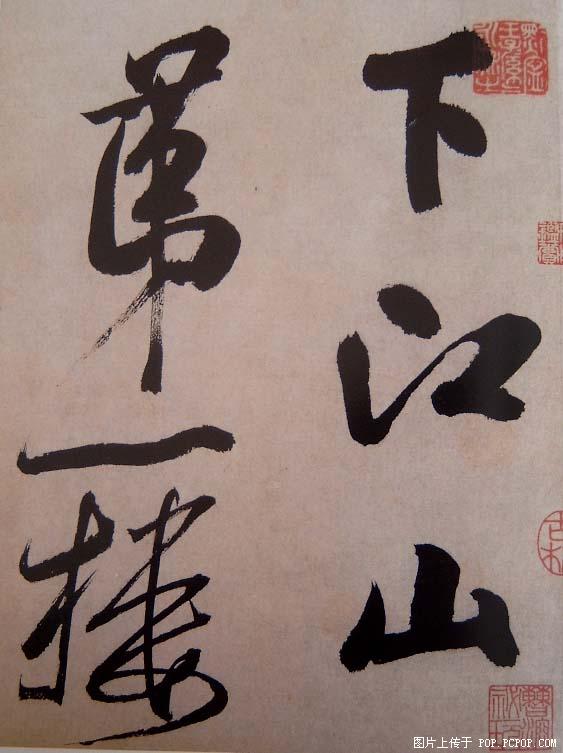 下江山
第一楼
图片上传于 POP.PCPOP.COM